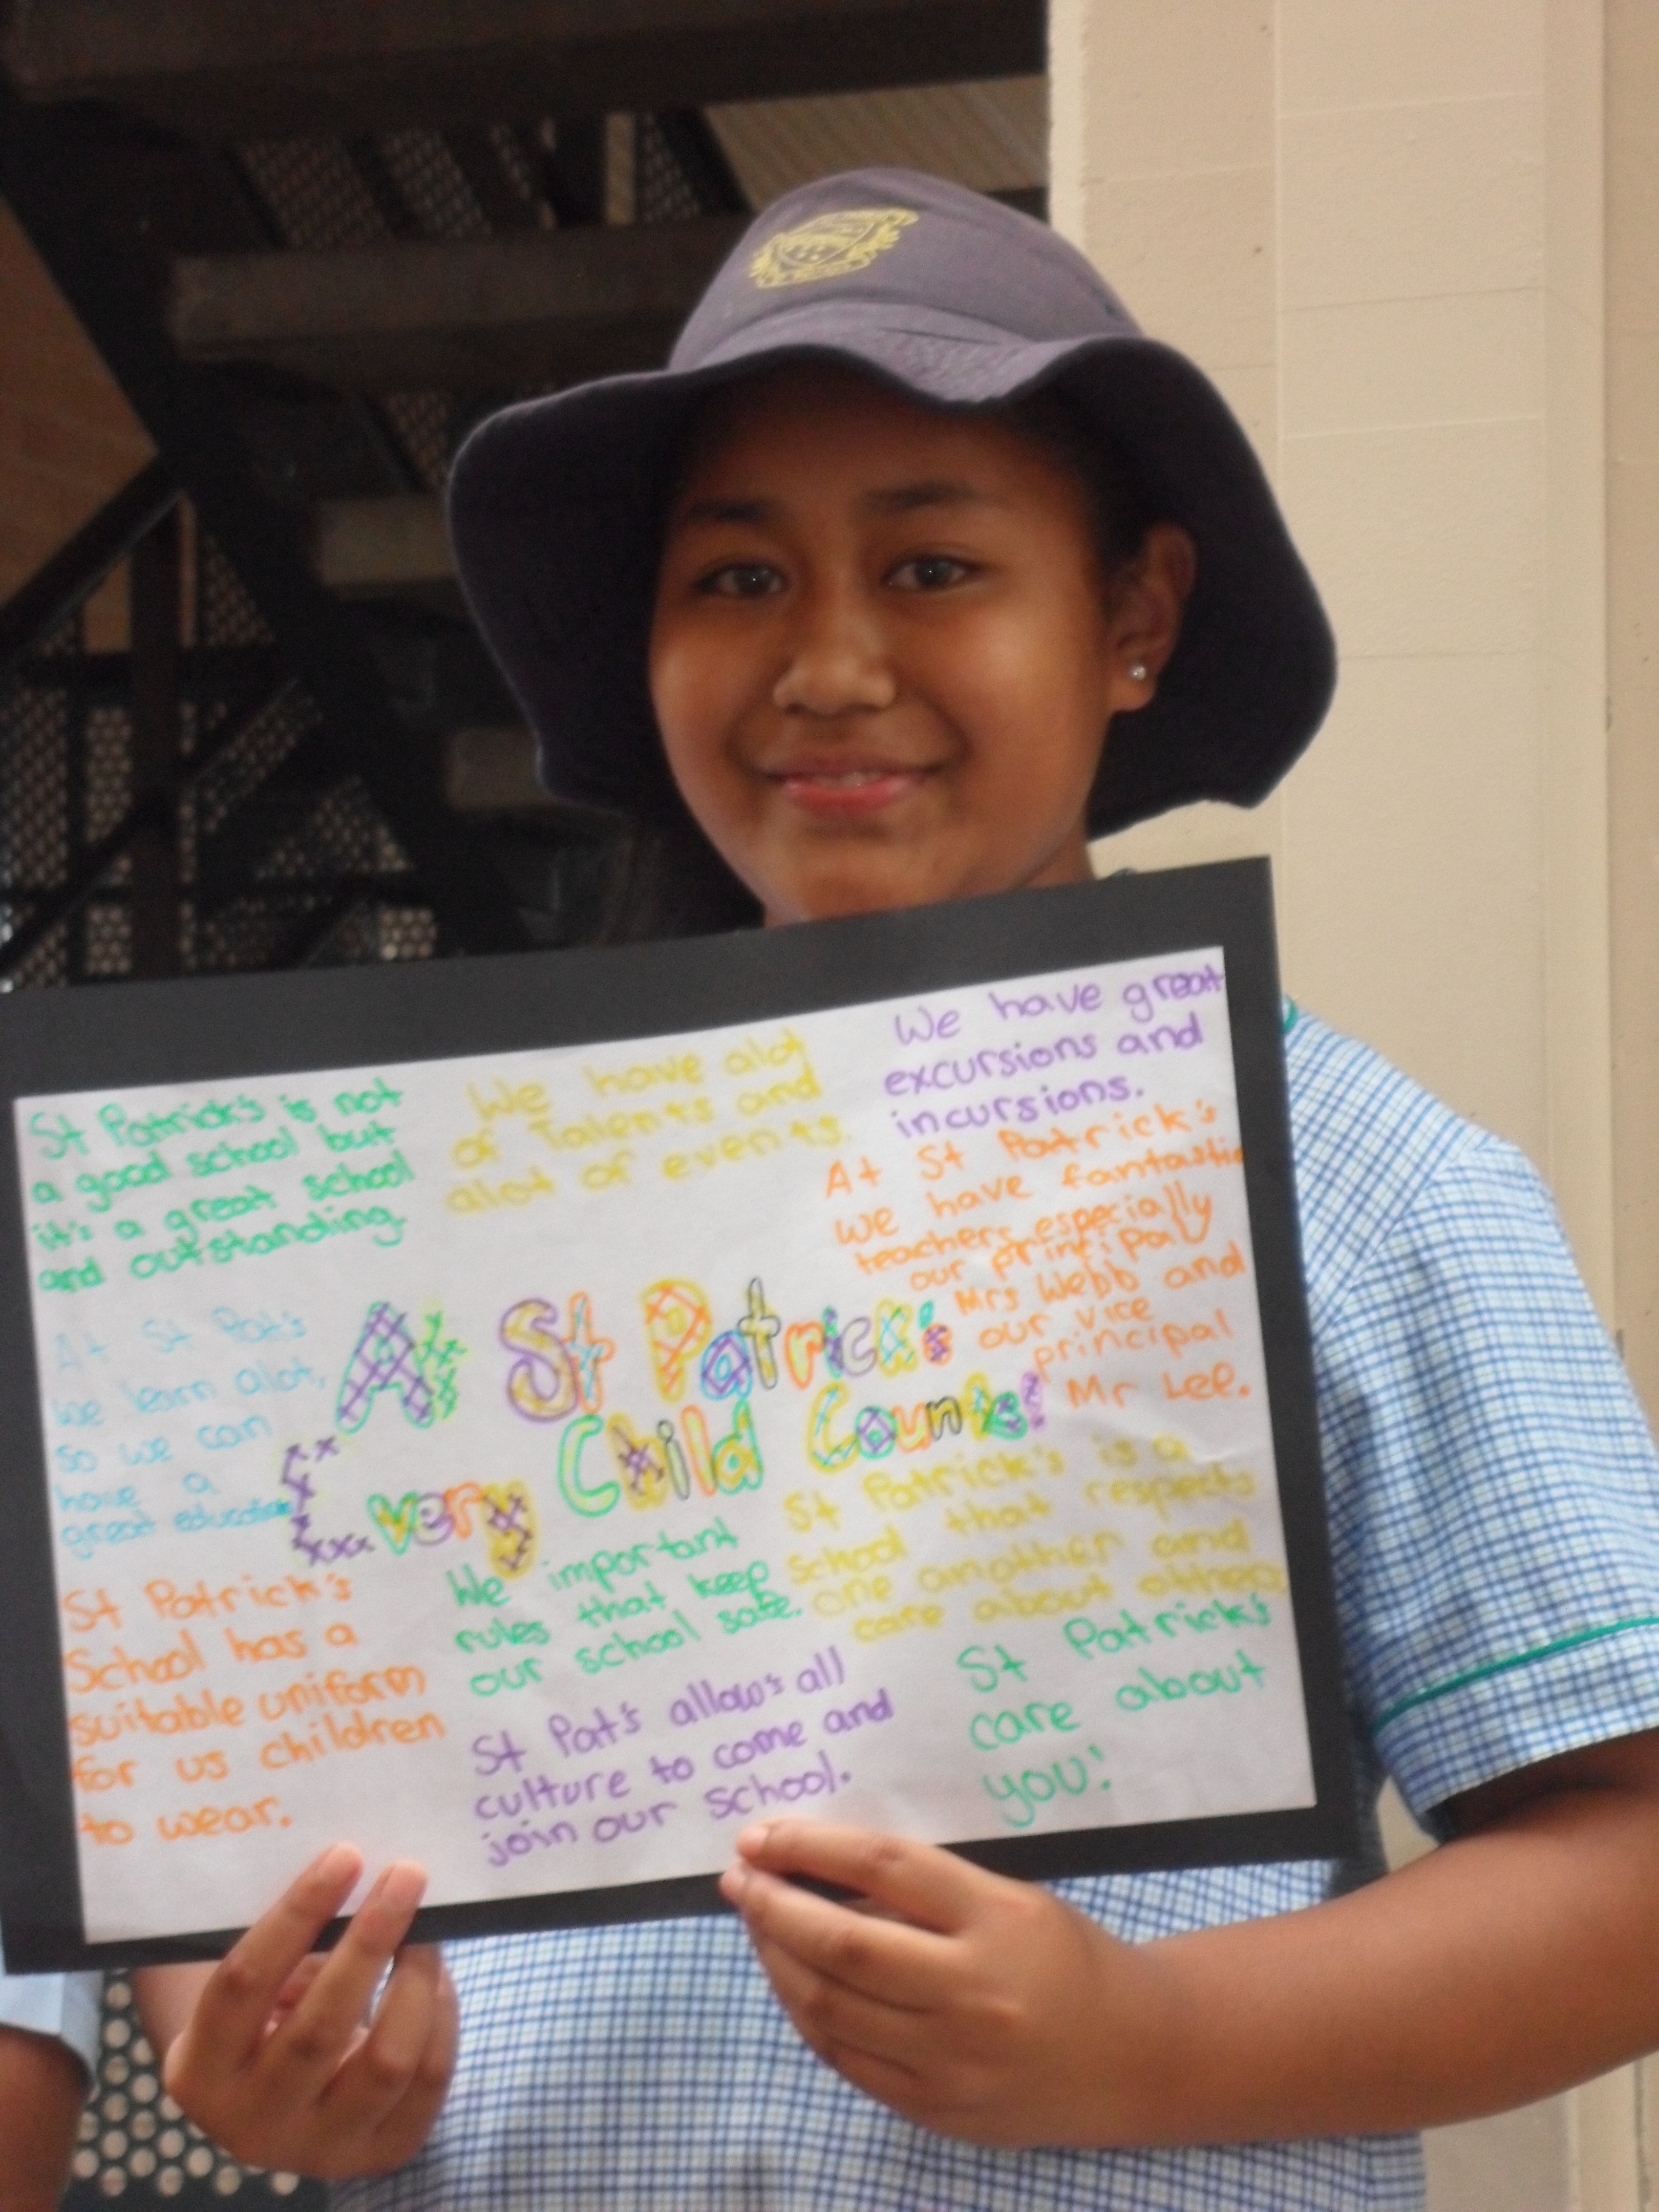 St Patrick's is not
a good school but
it's a great school
and outstanding.
We have alot
of Talents and
alot of events.
We have great
excursions and
incursions.
At St Patrick's
we have fantastic
teachers especially
our principal
Mrs Webb and
our vice
principal
Mr Lee.
At St Pat's
we learn alot,
so we can
have a
great education
At St Patrick's
Every Child Counts!
St Patrick's
School has a
suitable uniform
for us children
to wear.
We important
rules that keep
our school safe.
St Patrick's is a
school that respects
one another and
care about others
St Pat's allow's all
culture to come and
join our school.
St Patrick's
care about
you!